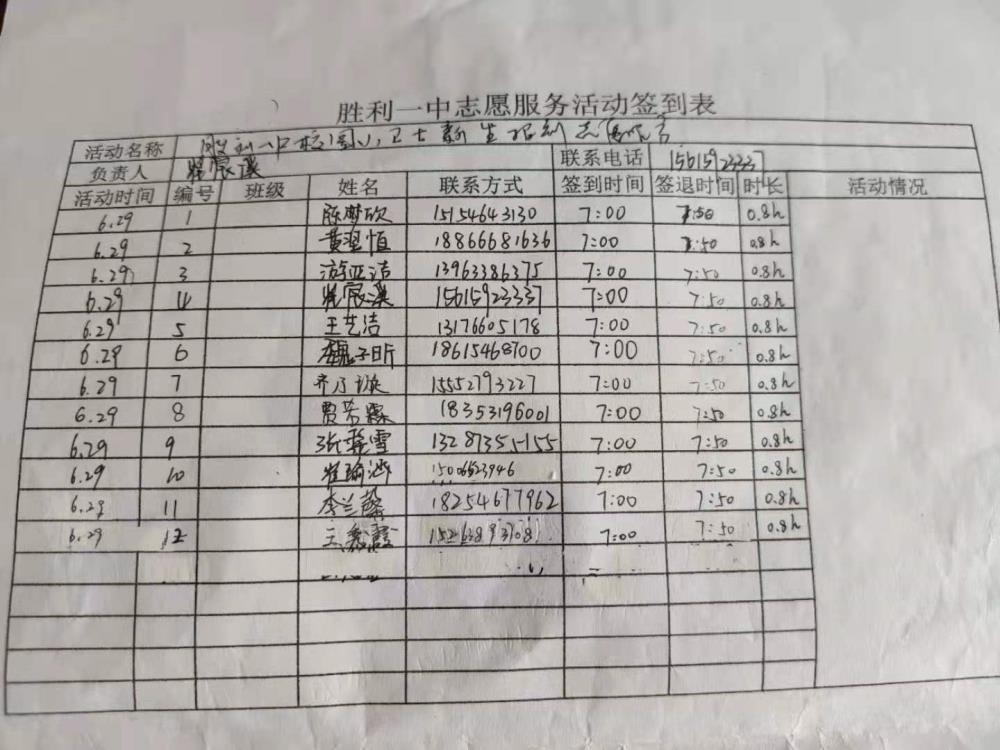 胜利一中志愿服务活动签到表
活动名称 胜利一中校园小卫士新生报到志愿服务
负责人 宸溪 联系电话 15615923337
活动时间 编号 班级 姓名 联系方式 签到时间 签退时间 时长 活动情况
6.29 1 陈梦欣 15154643130 7:00 7:50 0.8h
6.29 2 黄翌恒 18866681636 7:00 7:50 0.8h
6.29 3 游亚洁 13963386375 7:00 7:50 0.8h
6.29 4 宸溪 15615923337 7:00 7:50 0.8h
6.29 5 王艺洁 13176605178 7:00 7:50 0.8h
6.29 6 魏子昕 18615468700 7:00 7:50 0.8h
6.29 7 齐乃璇 15552793227 7:00 7:50 0.8h
6.29 8 贾芳霖 18353196001 7:00 7:50 0.8h
6.29 9 张馨雪 13287355155 7:00 7:50 0.8h
6.29 10 崔瑜涵 15006623946 7:00 7:50 0.8h
6.29 11 李兰馨 18254677962 7:00 7:50 0.8h
6.29 12 霞 7:00 7:50 0.8h